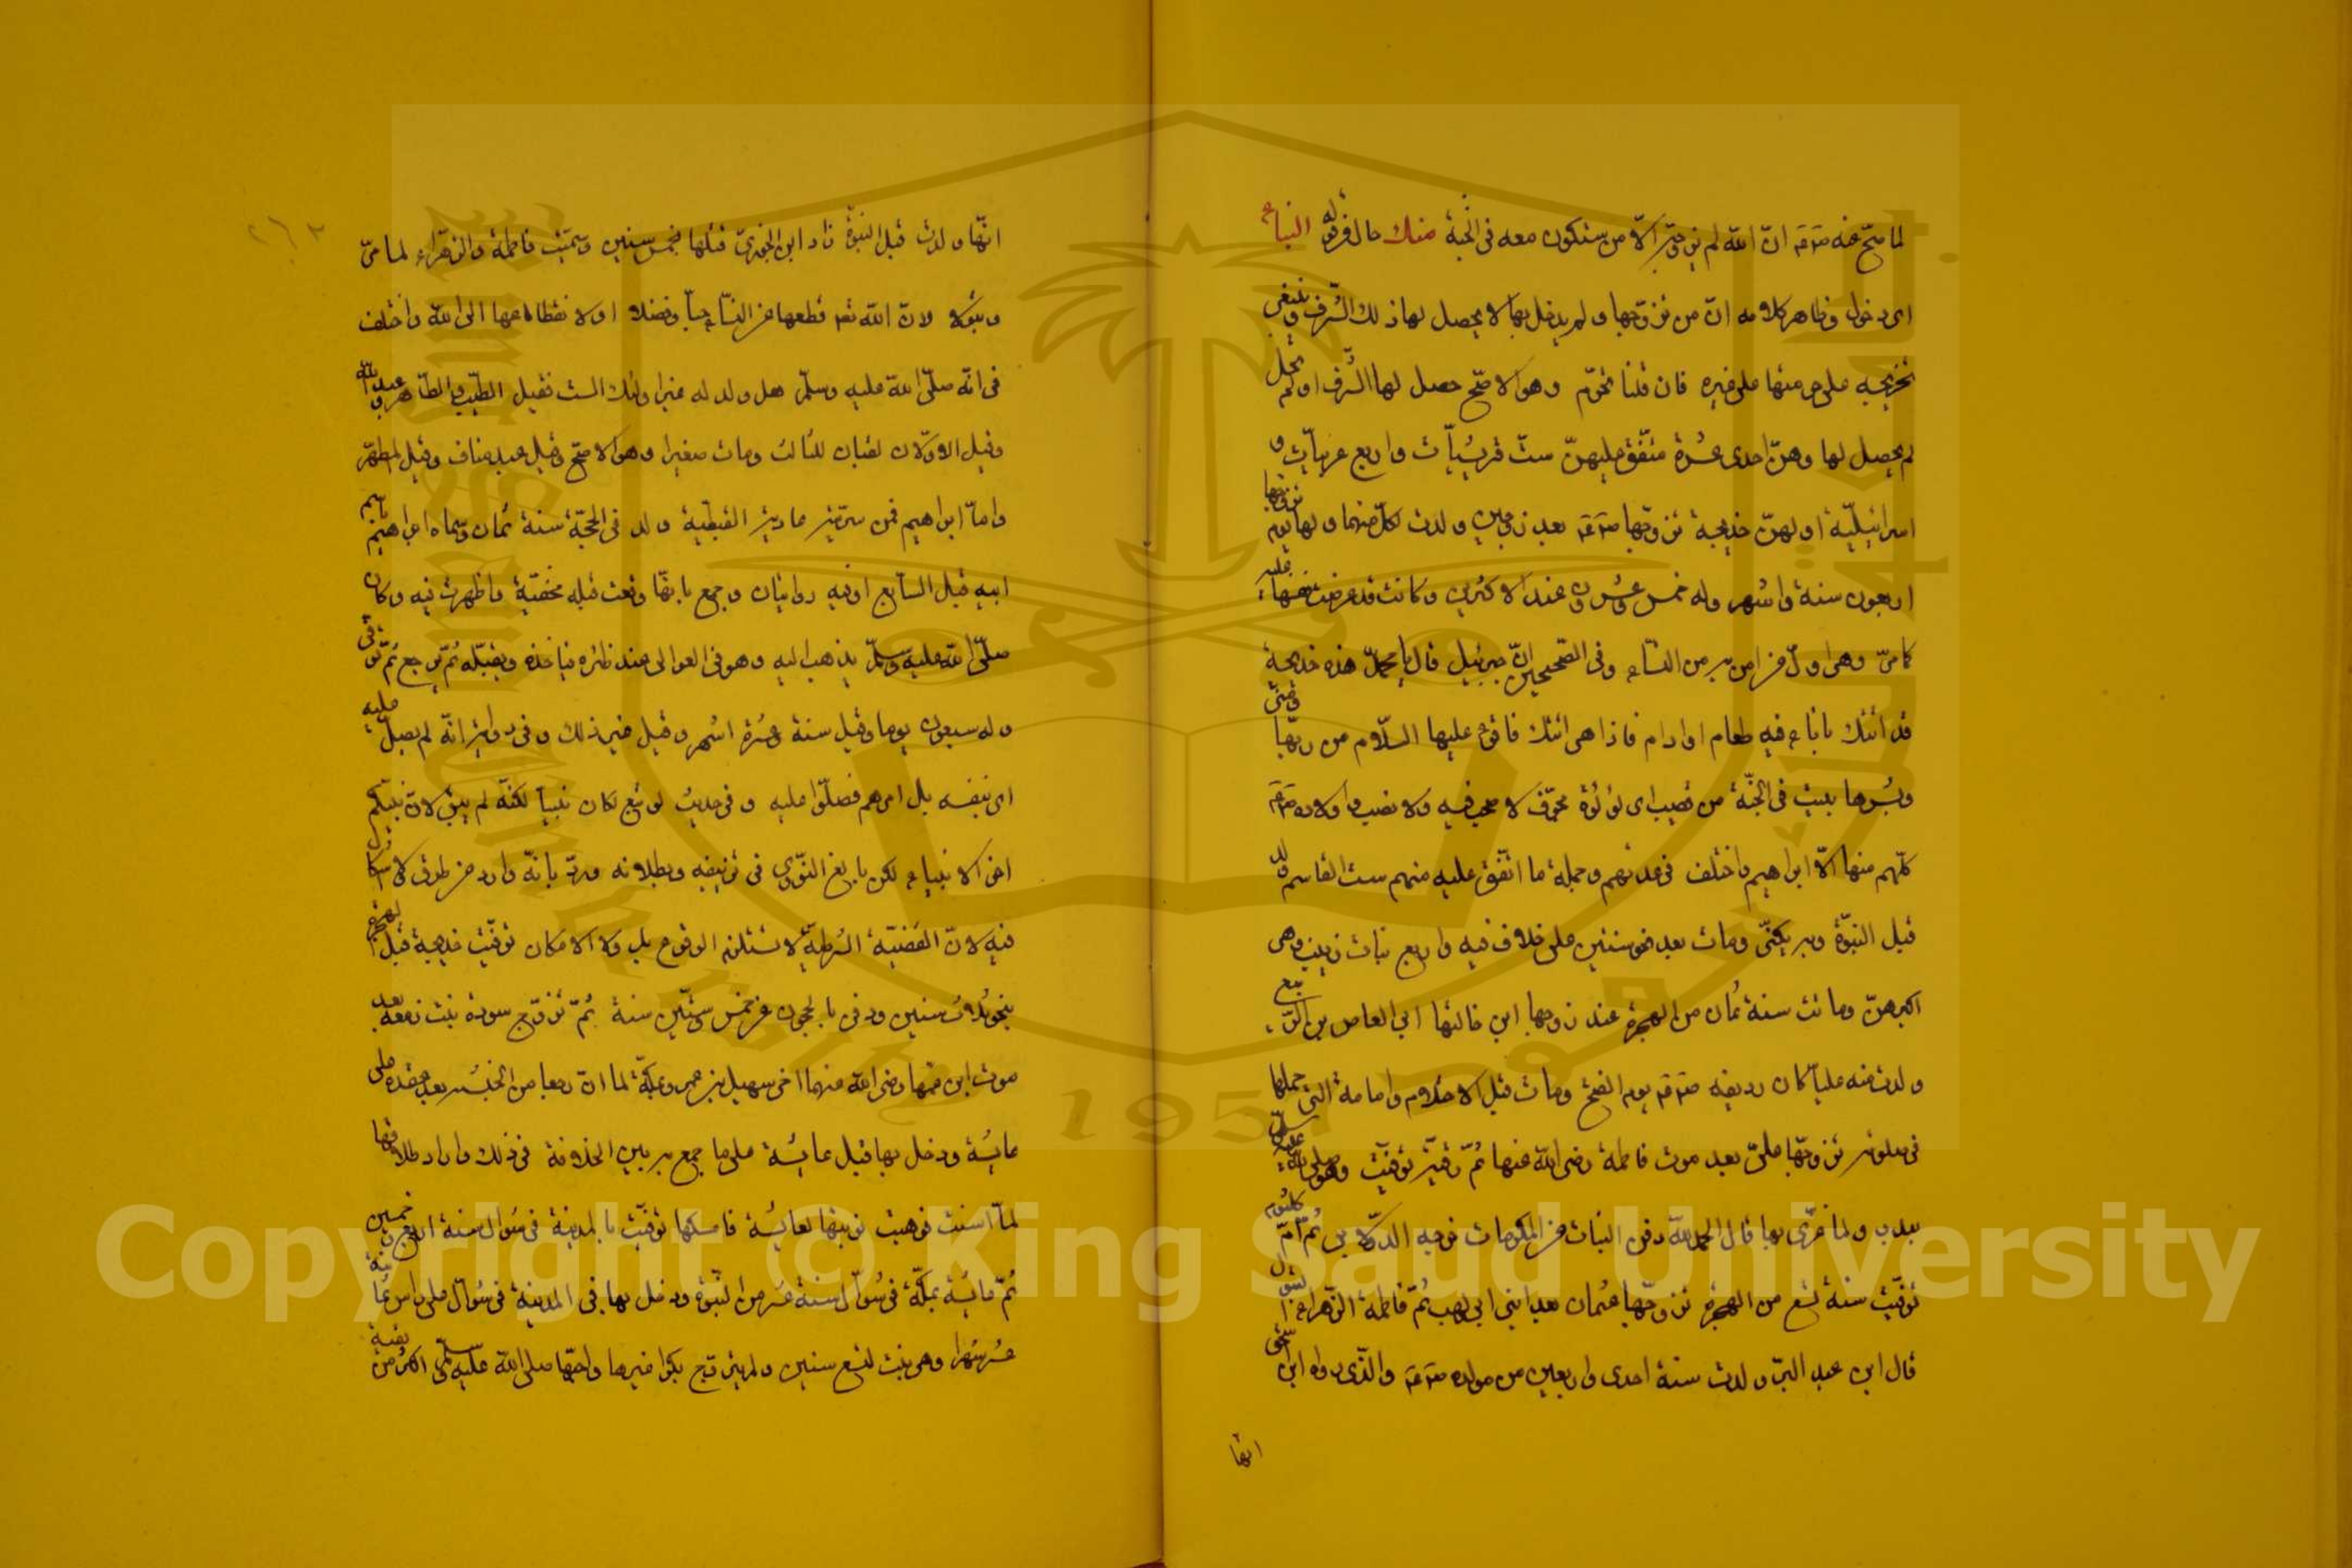 لما صح عنه صم ان الله لم يزوجني الا من ستكون معه في الجنة منك حال لقوله النساء
اى دخول وظاهر كلامه ان من تزوجها ولم يدخل بها لا يحصل لها ذلك الشرف وينبغي
تخريجه على حرمتها على غيره فان قلنا تحرم وهو الاصح حصل لها الشرف او لم تحل
لم يحصل لها وهن احدى عشرة متفق عليهن ست قرشيات واربع عربيات و
اسرائيلية اولهن خديجة تزوجها صم بعد زوجين ولدت لكل منهما ولها يوم تزوجها
اربعون سنة واشهر وله خمس وعشرون عند الاكثرين وكانت قد عرضت نفسها عليه
كما مر وهى اول من امن به من النساء وفى الصحيحين ان جبرئيل قال يا محمد هذه خديجة
قد اتتك باناء فيه طعام او ادام فاذا هى اتتك فاقرء عليها السلام من ربها ومنى
وبشرها ببيت فى الجنة من قصب اى لؤلؤة مجوف لا صخب فيه ولا نصب واولاده صم
كلهم منها الا ابراهيم واختلف فى عدتهم وجملة ما اتفق عليه منهم ست القاسم ولد
قبل النبوة وبه يكنى ومات بعد نحو سنتين على خلاف فيه واربع بنات زينب وهى
اكبرهن وماتت سنة ثمان من الهجرة عند زوجها ابن خالتها ابى العاص بن الربيع
ولدت منه عليا كان رديفه صم يوم الفتح ومات قبل الاحتلام وامامة التى حملها
فى صلوته تزوجها على بعد موت فاطمة رضى الله عنها ثم رقية توفيت وهو صلى الله عليه وسلم
ببدر ولما عزى بها قال الحمد لله دفن البنات من المكرمات خرجه الدولابى ثم ام كلثوم
توفيت سنة تسع من الهجرة تزوجها عثمان بعد ابنى ابى لهب ثم فاطمة الزهراء البتول
قال ابن عبد البر ولدت سنة احدى واربعين من مولده صم والذى رواه ابن اسحق
انها
انها ولدت قبل النبوة زاد ابن الجوزى قبلها بخمس سنين وسميت فاطمة والزهراء لما مر
وبتولا لان الله تعم قطعها عن النساء حسبا وفضلا او لانقطاعها الى الله واختلف
فى انه صلى الله عليه وسلم هل ولد له غير اولئك الست فقيل الطيب والطاهر وعبد الله
وقيل الاولان لقبان للثالث ومات صغيرا وهو الاصح وقيل عبد مناف وقيل المطهر
واما ابراهيم فمن سريته مارية القبطية ولد فى الحجة سنة ثمان وسماه ابراهيم باسم
ابيه قبل السابع او فيه روايتان وجمع بانها وقعت قبله مخفية واظهرت فيه وكان
صلى الله عليه وسلم يذهب اليه وهو فى العوالى عند ظئره فياخذه ويقبله ثم يرجع ثم توفى
وله سبعون يوما وقيل سنة وعشرة اشهر وقيل غير ذلك وفى رواية انه لم يصل عليه
اى بنفسه بل امرهم فصلوا عليه وفى حديث لو بقى لكان نبيا لكنه لم يبق لان نبيكم
اخر الانبياء لكن بالغ النووى فى تزييفه وبطلانه ورد بانه وارد من طرق لا اشكال
فيه لان القضية الشرطية لا تستلزم الوقوع بل ولا الامكان توفيت خديجة قبل الهجرة
بنحو ثلاث سنين ودفن بالحجون عن خمس وستين سنة ثم تزوج سودة بنت زمعة بعد
موت ابن عمها رضى الله عنهما اخى سهيل بن عمرو بمكة لما ان رجعا من الحبشة بعد عقده على
عايشة ودخل بها قبل عايشة على ما جمع به بين الخلاف فى ذلك واراد طلاقها
لما اسنت فوهبت نوبتها لعايشة فامسكها توفيت بالمدينة فى شوال سنة اربع وخمسين
ثم عايشة بمكة فى شوال سنة عشر من النبوة ودخل بها فى المدينة فى شوال على راس ثمانية
عشر شهرا وهى بنت تسع سنين ولم يتزوج بكرا غيرها واحبها صلى الله عليه وسلم اكثر من بقية